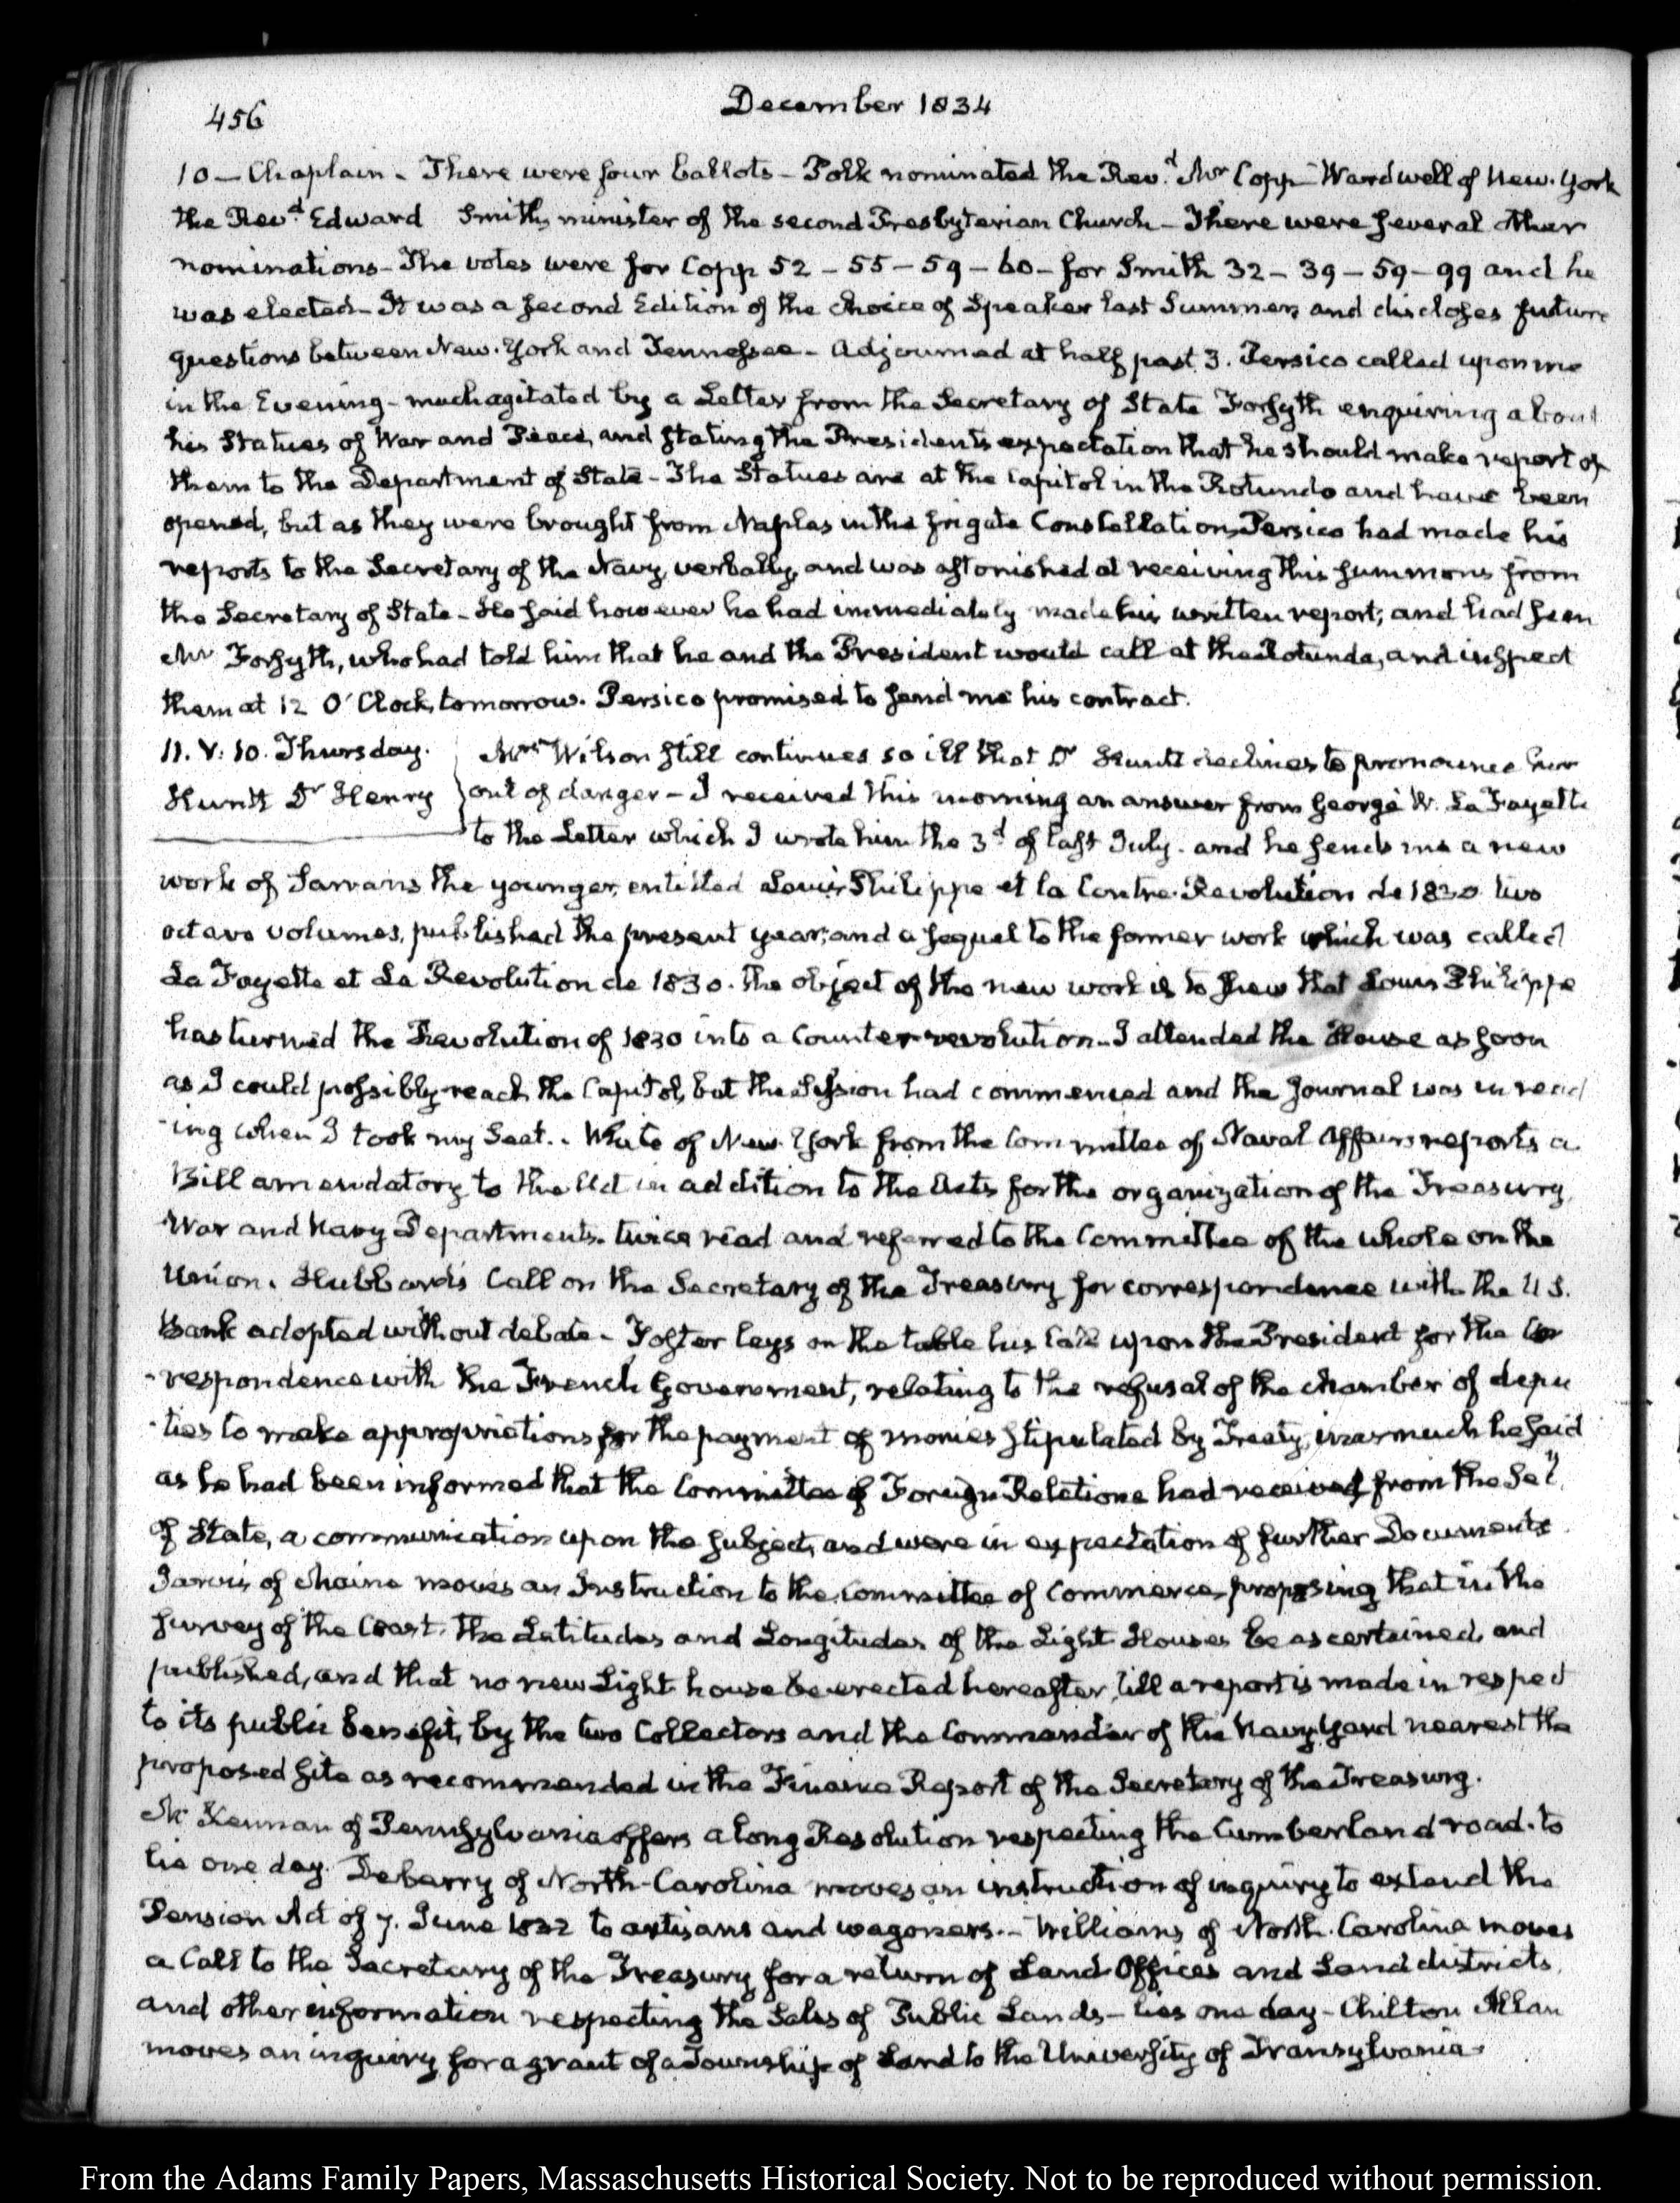 456
December 1834
10 — Chaplain - There were four ballots - Polk nominated the Rev.d Mr Copp - Wardwell of New-York
the Revd Edward Smith, minister of the second Presbyterian Church - There were several other
nominations - The votes were for Copp 52 - 55 - 59 - 60 - for Smith 32 - 39 - 59 - 99 and he
was elected - It was a second Edition of the choice of Speaker last Summer, and discloses future
questions between New-York and Tennessee - Adjourned at half past 3. Persico called upon me
in the Evening - much agitated by a Letter from the Secretary of State Forsyth enquiring about
his Statues of War and Peace, and stating the President's expectation that he should make report of
them to the Department of State - The Statues are at the Capitol in the Rotundo and have been
opened, but as they were brought from Naples in the frigate Constellation, Persico had made his
reports to the Secretary of the Navy, verbally, and was astonished at receiving this summons from
the Secretary of State - He said however he had immediately made his written report; and had seen
Mr Forsyth, who had told him that he and the President would call at the Rotunda, and inspect
them at 12 O'Clock, tomorrow. Persico promised to send me his contract.
11. V: 10. Thursday. Mrs Wilson still continues so ill that Dr Huntt declines to pronounce her
Huntt Dr Henry out of danger - I received this morning an answer from George W. La Fayette
to the Letter which I wrote him the 3d of last July. and he sends me a new
work of Sarrans the younger, entitled Louis Philippe et la Contre-Revolution de 1830 two
octavo volumes, published the present year; and a sequel to the former work which was called
La Fayette et La Revolution de 1830. the object of the new work is to shew that Louis Philippe
has turned the Revolution of 1830 into a Counter-revolution - I attended the House as soon
as I could possibly reach the Capitol, but the Session had commenced and the Journal was in read
-ing when I took my Seat. - White of New-York from the Committee of Naval Affairs reports a
Bill amendatory to the Act in addition to the Acts for the organization of the Treasury
War and Navy Departments. twice read and referred to the Committee of the whole on the
Union. Hubbard's Call on the Secretary of the Treasury for correspondence with the U.S.
Bank adopted without debate - Foster lays on the table his Call upon the President for the Cor
-respondence with the French Government, relating to the refusal of the chamber of depu
-ties to make appropriations for the payment of monies stipulated by Treaty, inasmuch he said
as he had been informed that the Committee of Foreign Relations had received from the Sey
of State, a communication upon the subject, and were in expectation of further Documents
Jarvis of Maine moves an Instruction to the Committee of Commerce, proposing that in the
survey of the Coast, the Latitudes and Longitudes of the Light Houses be ascertained, and
published, and that no new Light house be erected hereafter, till a report is made in respect
to its public benefit, by the two Collectors and the Commander of the Navy Yard nearest the
proposed site as recommended in the Finance Report of the Secretary of the Treasury.
Mc Kennan of Pennsylvania offers a long Resolution respecting the Cumberland road. to
lie one day. Deberry of North-Carolina moves an instruction of inquiry to extend the
Pension Act of 7. June 1832 to artisans and wagoners. - Williams of North-Carolina moves
a Call to the Secretary of the Treasury for a return of Land Offices and Land districts,
and other information respecting the Sales of Public Lands - lies one day - Chilton Allan
moves an inquiry for a grant of a Township of Land to the University of Transylvania -
From the Adams Family Papers, Massaschusetts Historical Society. Not to be reproduced without permission.